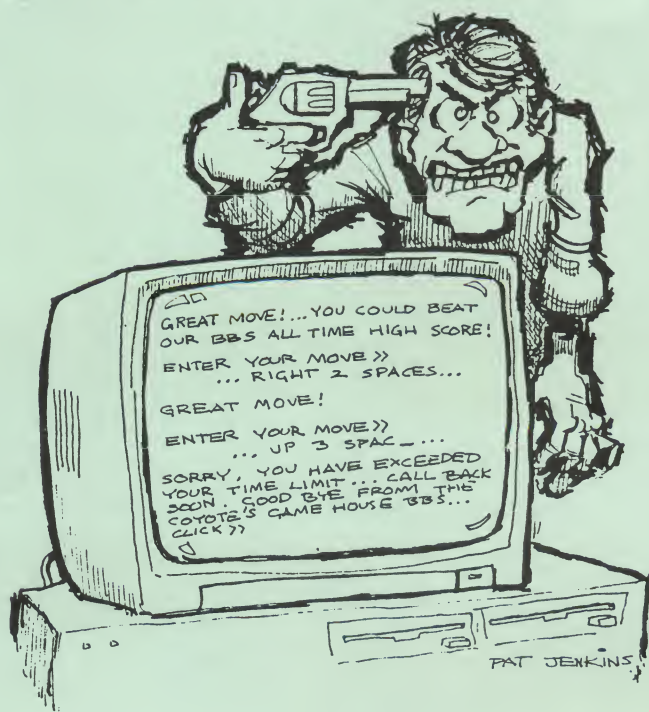 GREAT MOVE!...YOU COULD BEAT
OUR BBS ALL TIME HIGH SCORE!
ENTER YOUR MOVE»
... RIGHT 2 SPACES...
GREAT MOVE!
ENTER YOUR MOVE»
... UP 3 SPAC_...
SORRY, YOU HAVE EXCEEDED
YOUR TIME LIMIT... CALL BACK
SOON. GOOD BYE FROM THE
COYOTE'S GAME HOUSE BBS...
CLICK»
PAT JENKINS